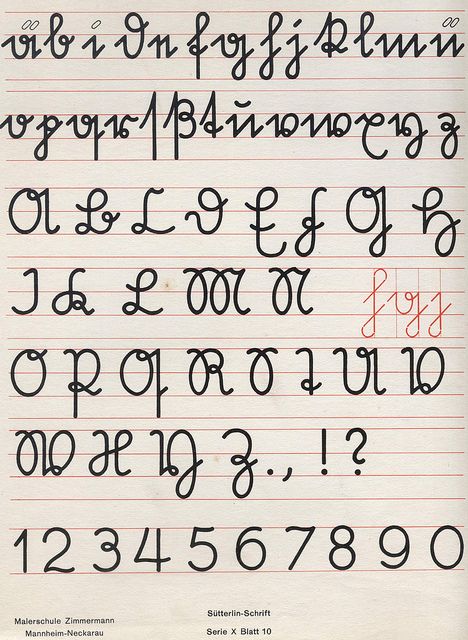 ä b i d e f g h j k l m ü
o p q r ſ ß t u v w x y z
A B C D E F G H
I K L M N h g j
O P Q R S T U V
W X Y Z . , ! ?
1 2 3 4 5 6 7 8 9 0
Malerschule Zimmermann
Mannheim-Neckarau
Sütterlin-Schrift
Serie X Blatt 10